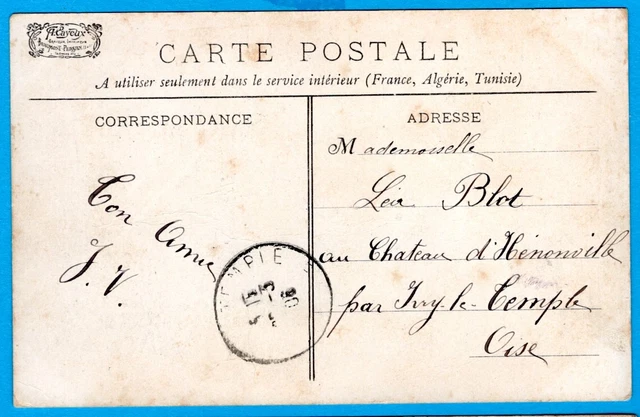 F. Cayeux
CARTE POSTALE
A utiliser seulement dans le service intérieur (France, Algérie, Tunisie)
CORRESPONDANCE
Ton Amie
J. V.
ADRESSE
Mademoiselle
Léa Blot
au Chateau d'Hénonville
par Ivry-le-Temple
Oise
TEMPLE